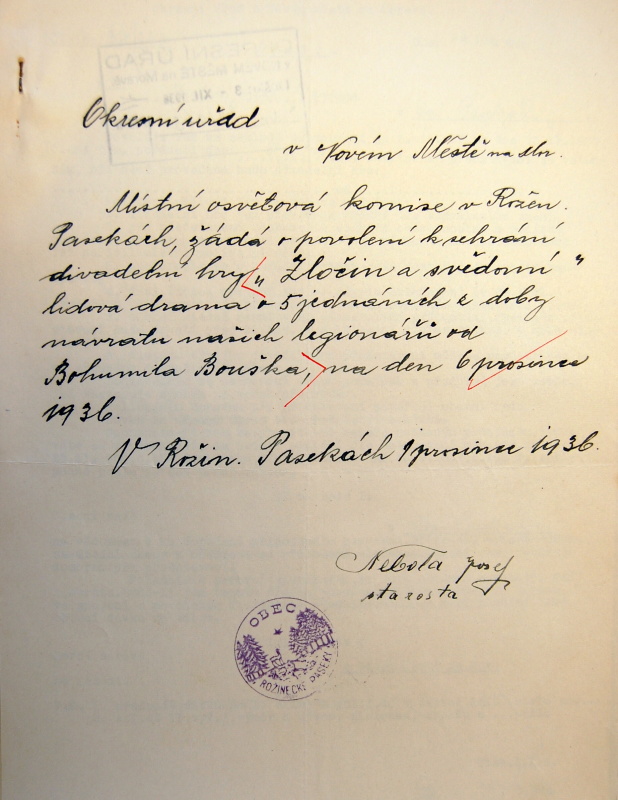 Okresní uřad
v Novém Městě na Mor.
Místní osvětová komise v Rožín.
Pasekách, žádá o povolení k sehrání
divadelní hry „ Zločin a svědomí "
lidová drama o 5 jednáních z doby
návratu našich legionářů od
Bohumila Bouška, na den 6 prosince
1936.
V Rožin. Pasekách 1 prosince 1936.
Nebola Josef
starosta
OBEC
ROŽINECKÉ PASEKY